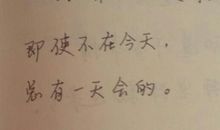 即使不在今天，
总有一天会的。